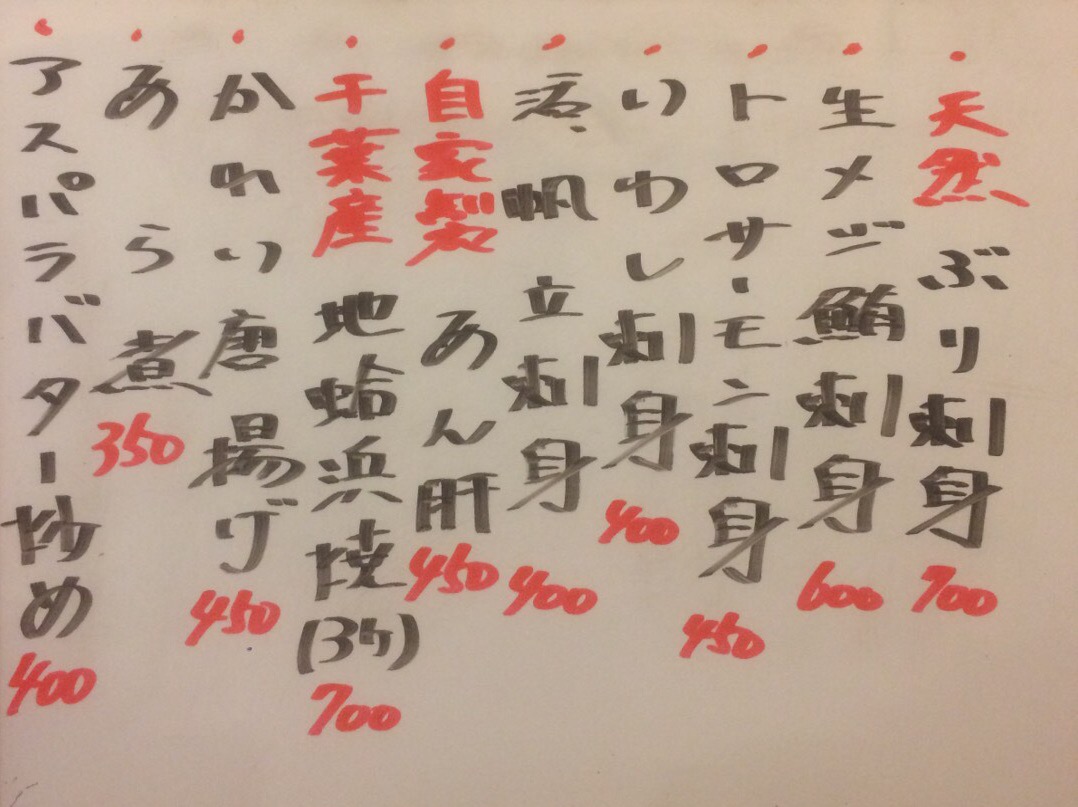 天然ぶり刺身700
生メジ鮪刺身600
トロサーモン刺身450
いわし刺身400
活、帆立刺身400
自家製あん肝450
千葉産地蛤浜焼(3ケ)700
かれい唐揚げ450
あら煮350
アスパラバター炒め400